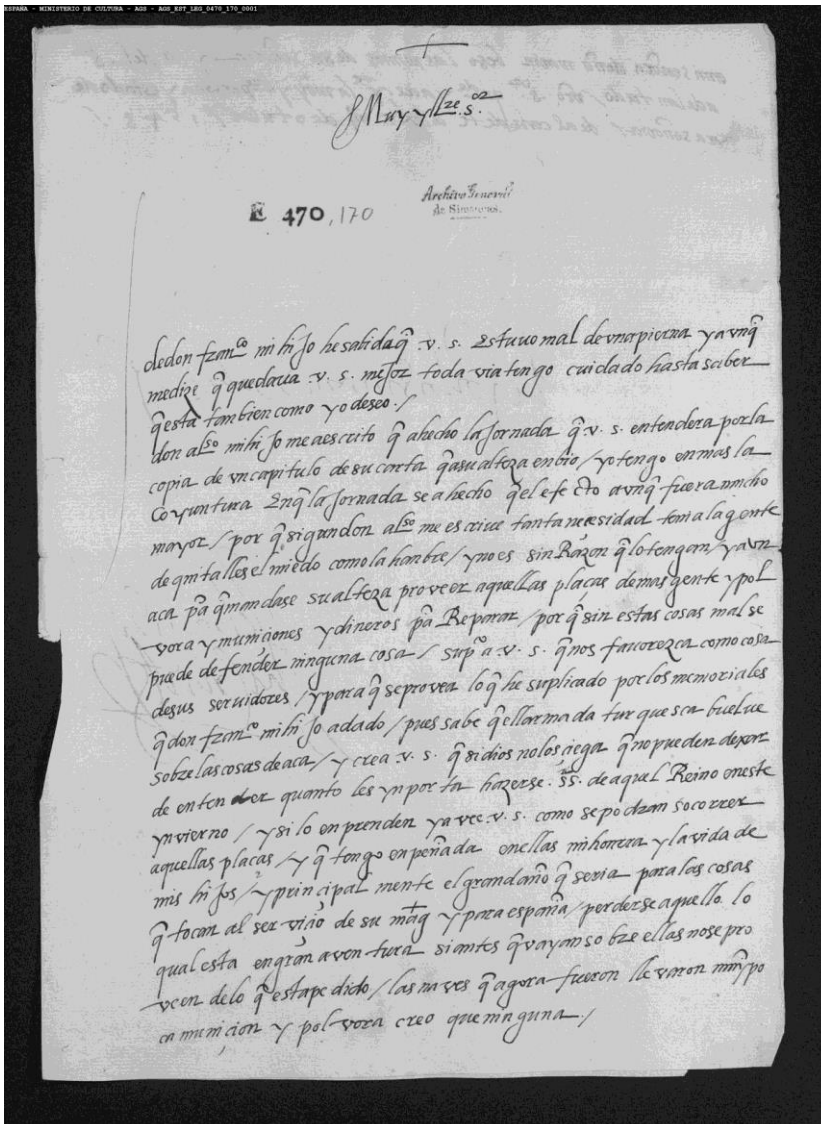 ESPAÑA - MINISTERIO DE CULTURA - AGS - AGS_EST_LEG_0470_170_0001
Muy yllᵉ. s.ᵒʳ
E 470,170
Archivo General
de Simancas.
de don franᶜᵒ mi hijo he sabido q̃ .v. s. Estuuo mal de vna pierna y avnq̃
me dize q̃ quedaua .v. s. mejor toda via tengo cuidado hasta saber
q̃ esta tan bien como yo deseo./
don alᵒ mi hijo me a escrito q̃ a hecho la Jornada q̃ .v. s. entendera por la
copia de vn capitulo de su carta q̃ a su alteza enbio / yo tengo en mas la
Coyuntura En q̃ la Jornada se a hecho q̃ el efecto avnq̃ fuera mucho
mayor / por q̃ sigun don alᵒ me escriue tanta necesidad tenia la gente
de quitalles el miedo como la hanbre / y no es sin Razon q̃ lo tengan / y avn
aca pᵃ q̃ mandase su alteza proveer aquellas plaças de mas gente y pol
vora y municiones y dineros pᵃ Reparar / por q̃ sin estas cosas mal se
puede defender ninguna cosa / supᶜᵒ a .v. s. q̃ nos fauorezca como cosa
de sus seruidores / y para q̃ se provea lo q̃ he suplicado por los memoriales
q̃ don franᶜᵒ mi hijo a dado / pues sabe q̃ ell armada turquesca buelue
sobre las cosas de aca / y crea .v. s. q̃ si dios no los ciega q̃ no pueden dexar
de entender quanto les ynporta hazerse .ss̃. de aquel Reino en este
ynvierno / y si lo enprenden ya vee .v. s. como se podran socorrer
aquellas plaças / y q̃ tengo enpeñada en ellas mi honrra y la vida de
mis hijos / y principal mente el gran daño q̃ seria para las cosas
q̃ tocan al seruiçio de su mag̃ y para españa / perderse aquello lo
qual esta en gran aventura si antes q̃ vayan sobre ellas no se pro
veen de lo q̃ esta pedido / las naves q̃ agora fueron llevaron muy po
ca municion y polvora creo que ninguna ./